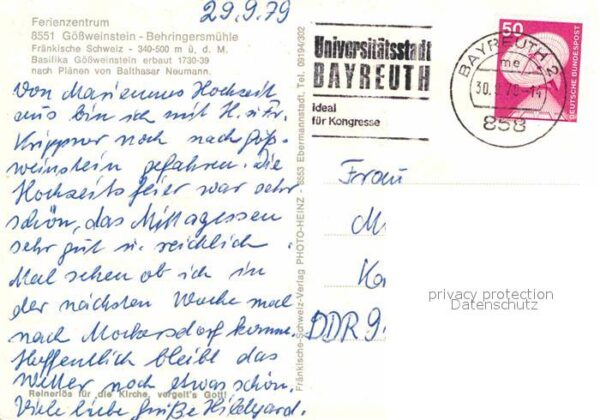 29.9.79
Ferienzentrum
8551 Gößweinstein - Behringersmühle
Fränkische Schweiz - 340-500 m ü. d. M.
Basilika Gößweinstein erbaut 1730-39
nach Plänen von Balthasar Neumann.
Von Mariennes Hochzeit
aus bin ich mit H. u. Fr.
Krippner noch nach Göß-
weinstein gefahren. Die
Hochzeitsfeier war sehr
schön, das Mittagessen
sehr gut u. reichlich.
Mal sehen ob ich in
der nächsten Woche mal
nach Mockersdorf komme.
Hoffentlich bleibt das
Wetter noch etwas schön.
Reinerlös für die Kirche, vergelt's Gott!
Viele liebe Grüße Hildegard.
Fränkische-Schweiz-Verlag PHOTO-HEINZ - 8553 Ebermannstadt, Tel. 09194/302
Universitätsstadt
BAYREUTH
ideal
für Kongresse
BAYREUTH 2
me
858
50
DEUTSCHE BUNDESPOST
Frau
M
Ka
DDR 9
privacy protection
Datenschutz